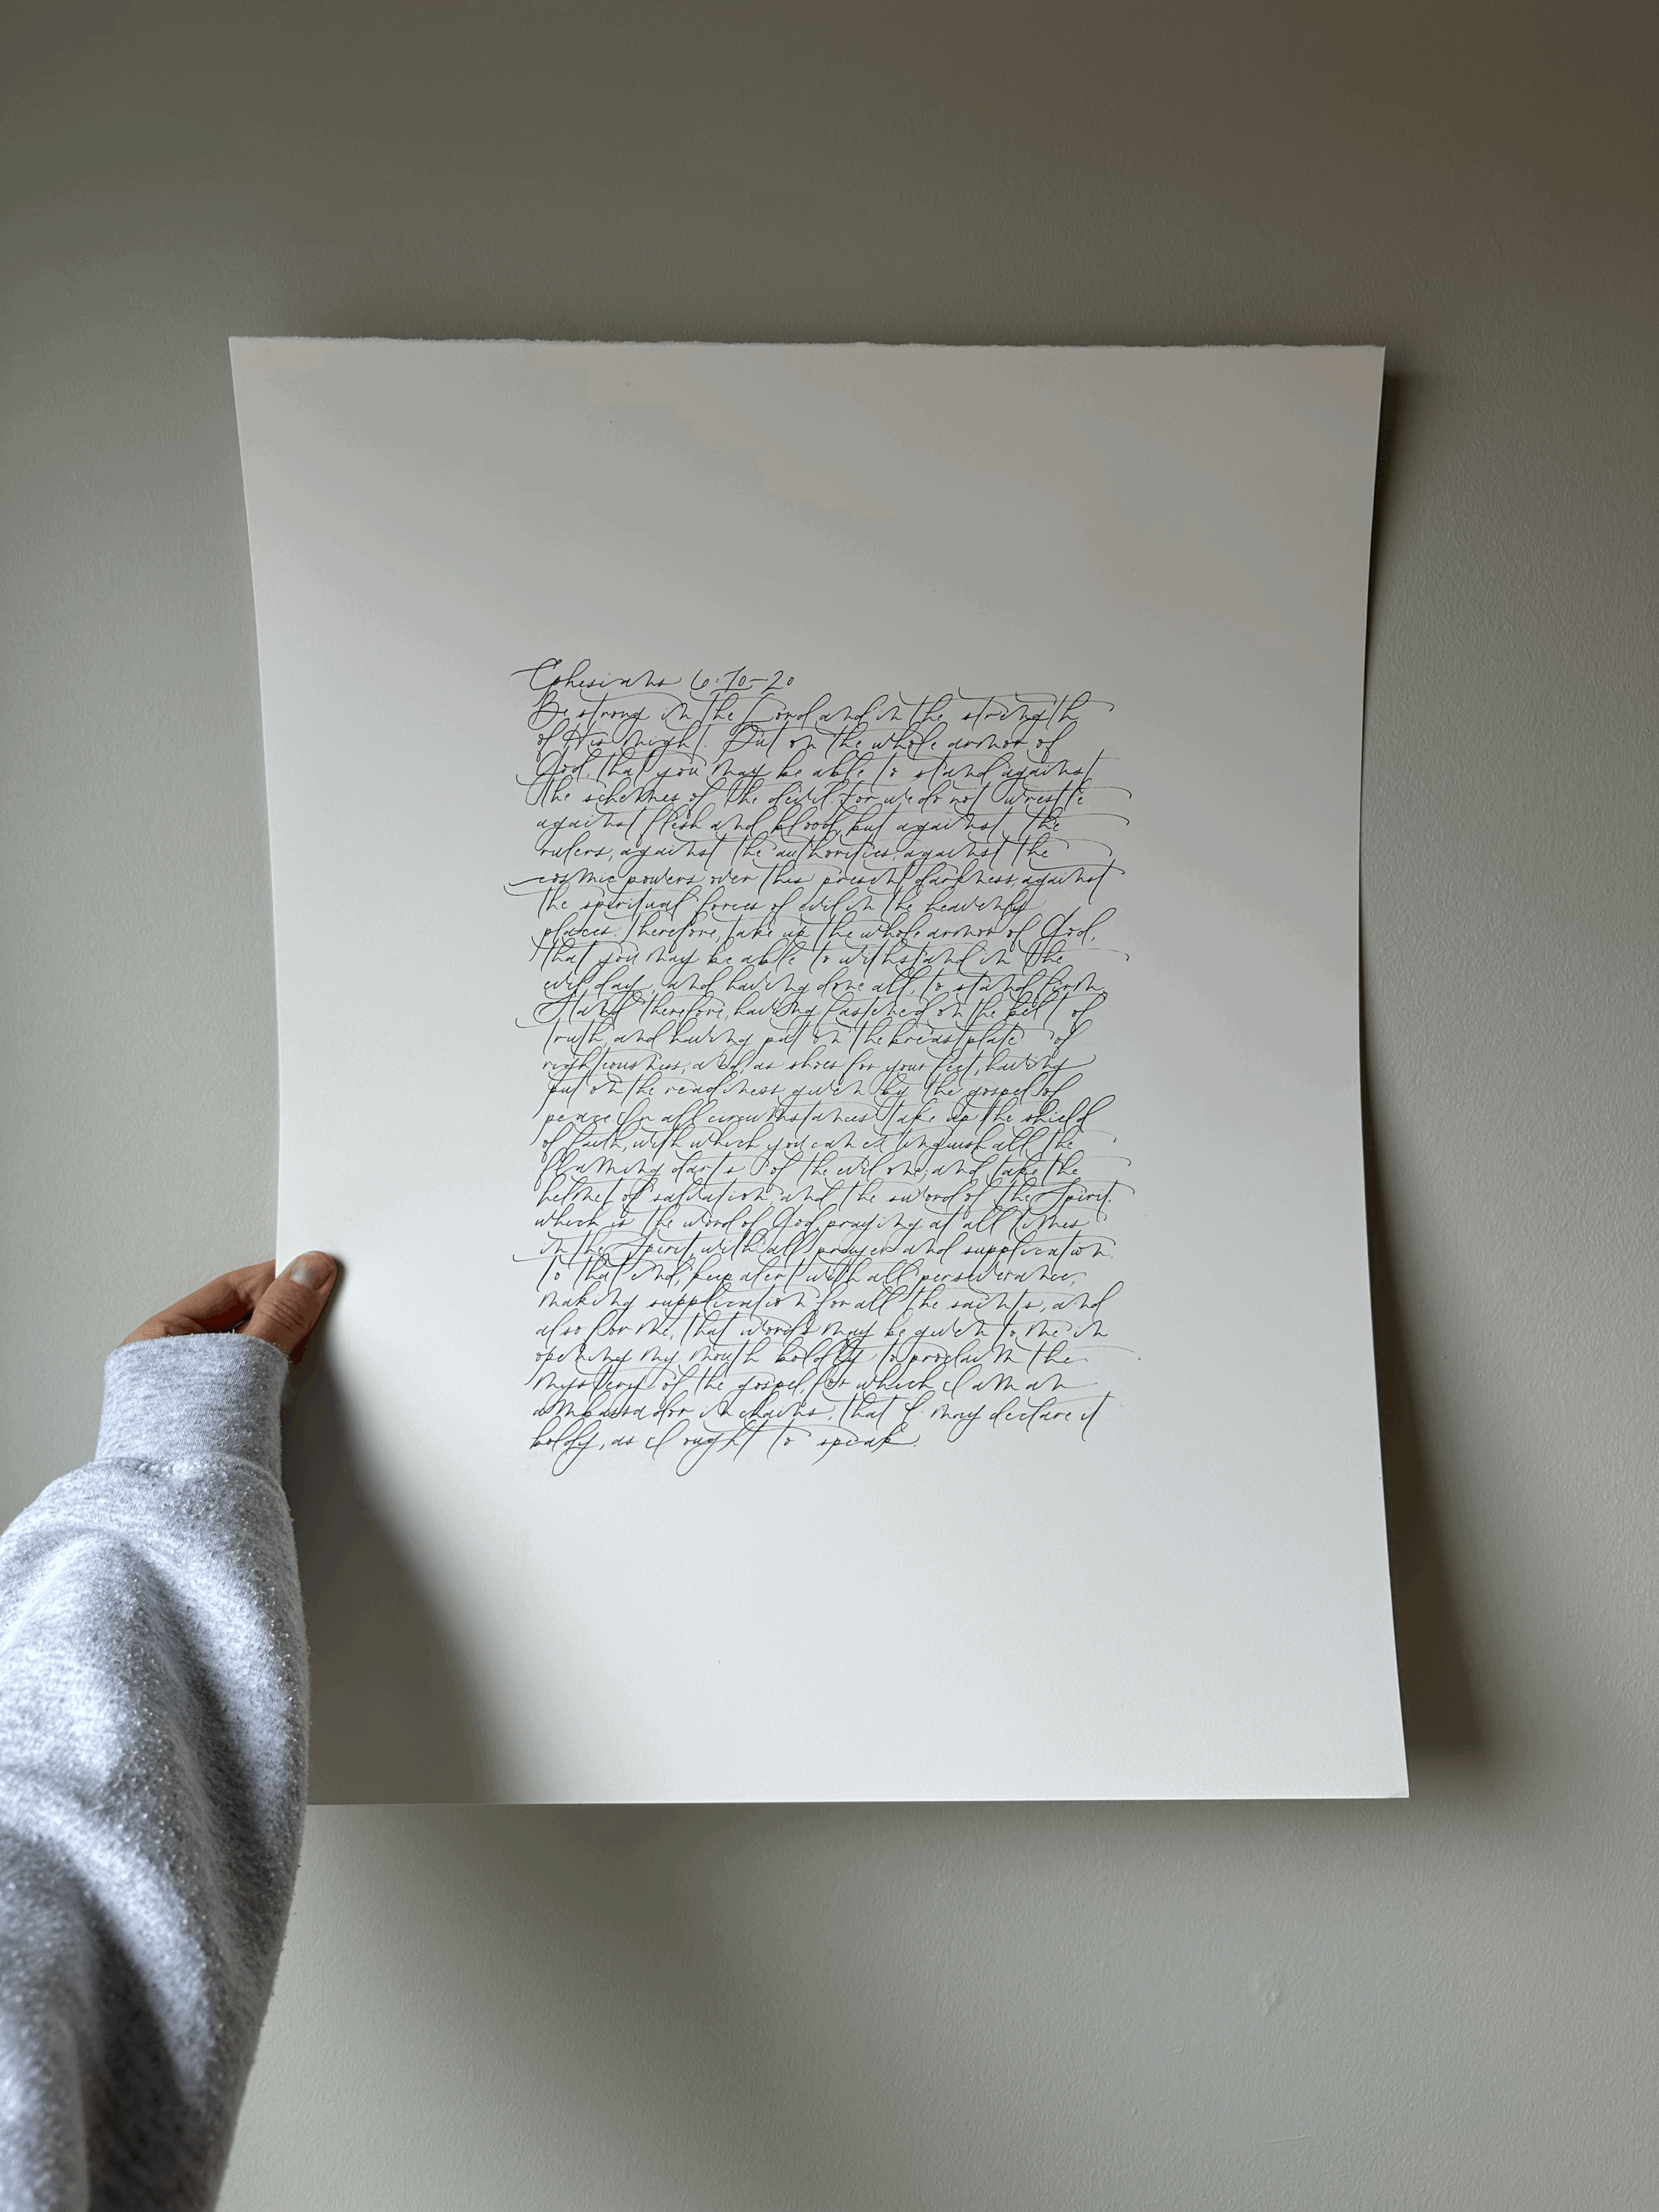 Ephesians 6:10-20
Be strong in the Lord and in the strength
of His might. Put on the whole armor of
God, that you may be able to stand against
the schemes of the devil. for we do not wrestle
against flesh and blood, but against the
rulers, against the authorities, against the
cosmic powers over this present darkness, against
the spiritual forces of evil in the heavenly
places. Therefore, take up the whole armor of God,
that you may be able to withstand in the
evil day, and having done all, to stand firm.
Stand therefore, having fastened on the belt of
truth, and having put on the breastplate of
righteousness, and, as shoes for your feet, having
put on the readiness given by the gospel of
peace. In all circumstances take up the shield
of faith, with which you can extinguish all the
flaming darts of the evil one; and take the
helmet of salvation, and the sword of the Spirit,
which is the word of God, praying at all times
in the Spirit, with all prayer and supplication.
To that end, keep alert with all perseverance,
making supplication for all the saints, and
also for me, that words may be given to me in
opening my mouth boldly to proclaim the
mystery of the gospel, for which I am an
ambassador in chains, that I may declare it
boldy, as I ought to speak.